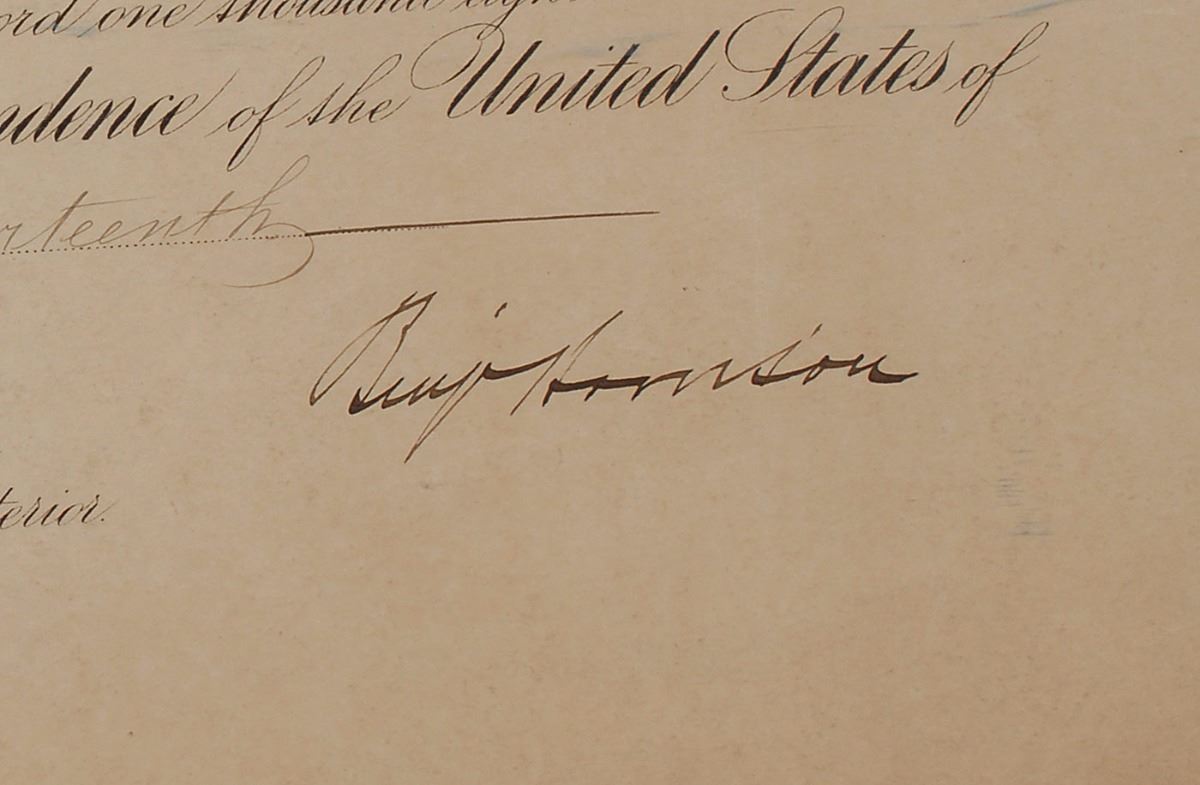 ord one thousand eigh
ndence of the United States of
rteenth
Benj Harrison
terior.